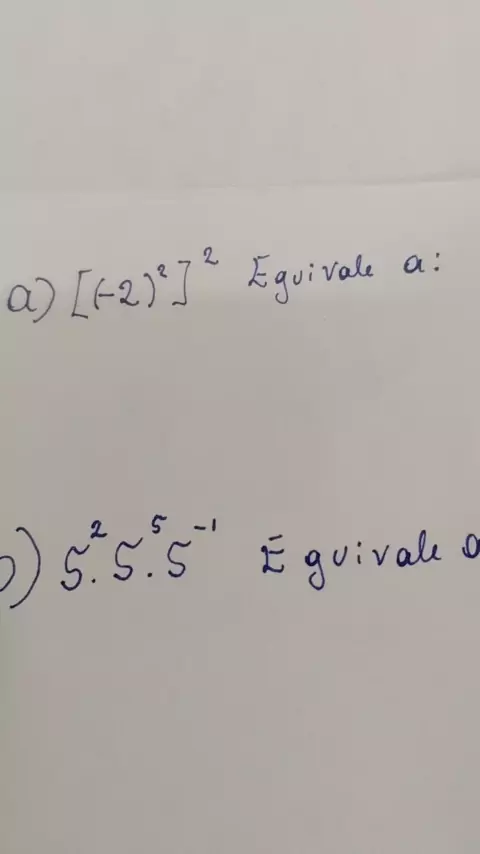 a) [(-2)²]² Equivale a:
) 5².5⁵.5⁻¹ Equivale a